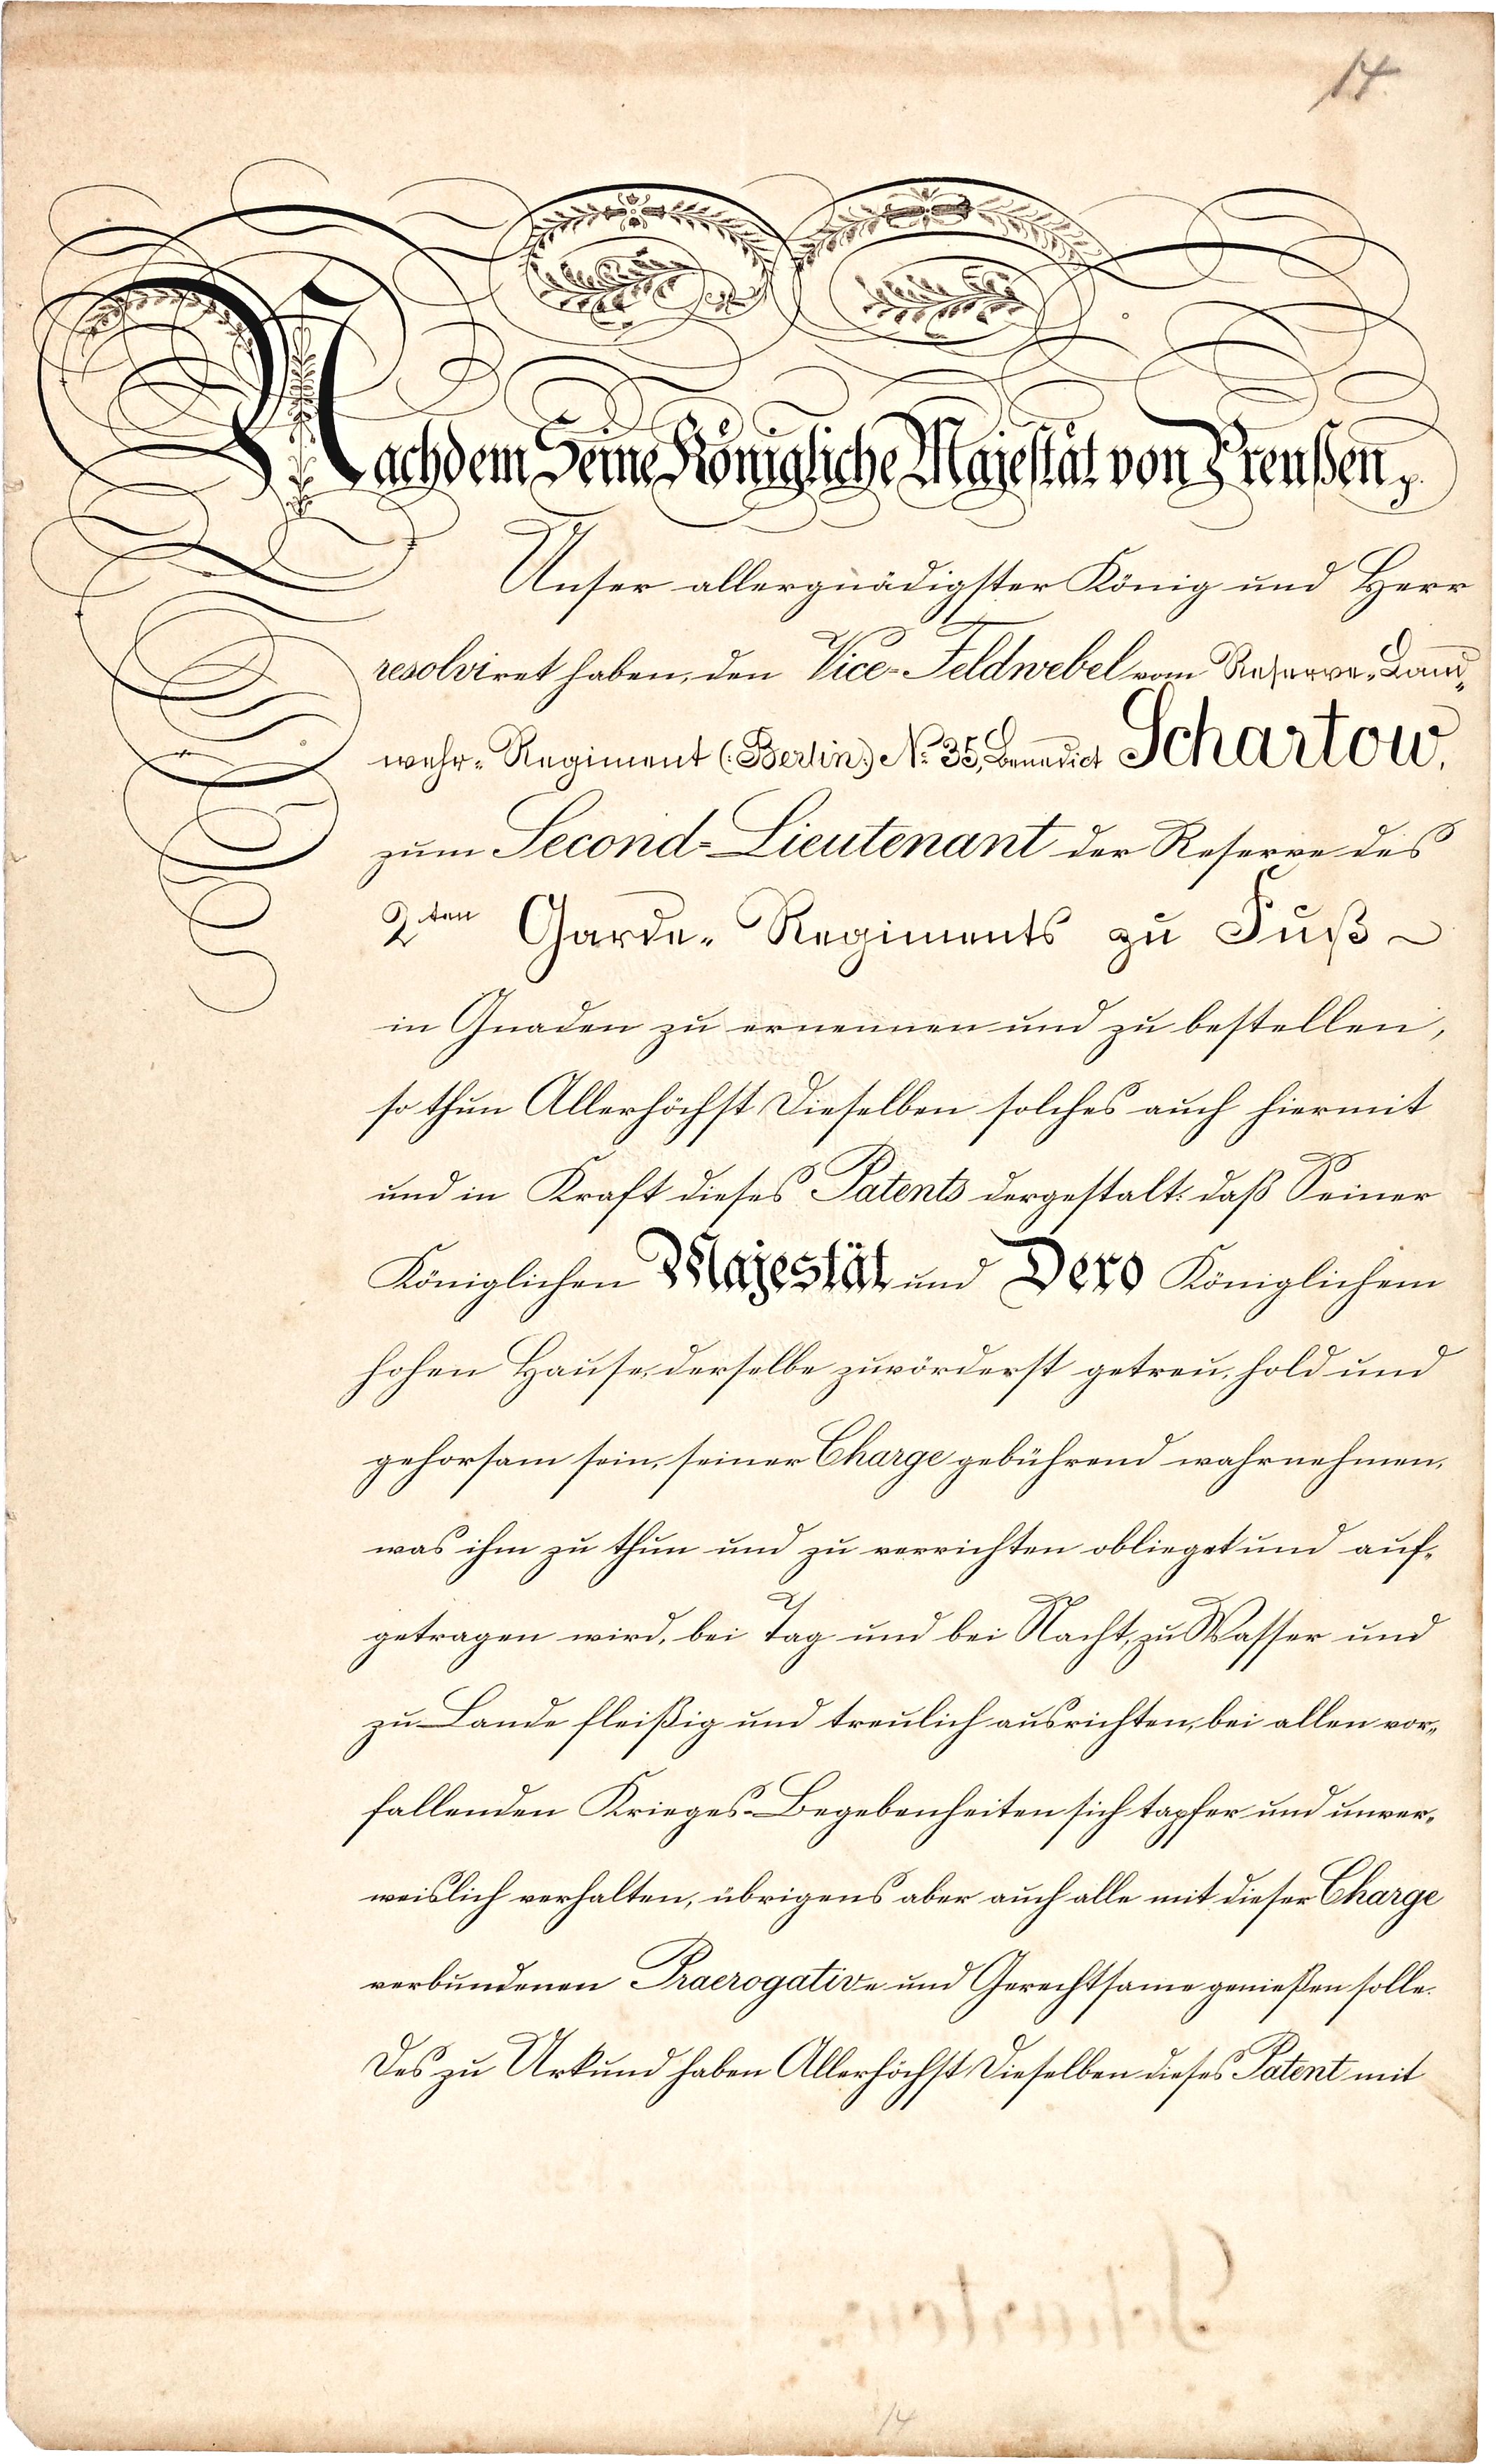 14
Nachdem Seine Königliche Majestät von Preußen, p.
Unser allergnädigster König und Herr
resolviret haben, den Vice-Feldwebel vom Reserve-Land-
wehr-Regiment (Berlin) No. 35, Benedict Schartow,
zum Second-Lieutenant der Reserve des
2ten Garde-Regiments zu Fuß
in Gnaden zu ernennen und zu bestellen,
so thun Allerhöchst Dieselben solches auch hiermit
und in Kraft dieses Patents dergestalt: daß Seiner
Königlichen Majestät und Dero Königlichem
hohen Hause, derselbe zuvörderst getreu, hold und
gehorsam sein, seiner Charge gebührend wahrnehmen,
was ihm zu thun und zu verrichten oblieget und auf-
getragen wird, bei Tag und bei Nacht, zu Wasser und
zu Lande fleißig und treulich ausrichten, bei allen vor-
fallenden Krieges-Begebenheiten sich tapfer und unver-
weislich verhalten, übrigens aber auch alle mit dieser Charge
verbundenen Praerogative und Gerechtsame genießen solle.
Des zu Urkund haben Allerhöchst Dieselben dieses Patent mit
Schartow
14